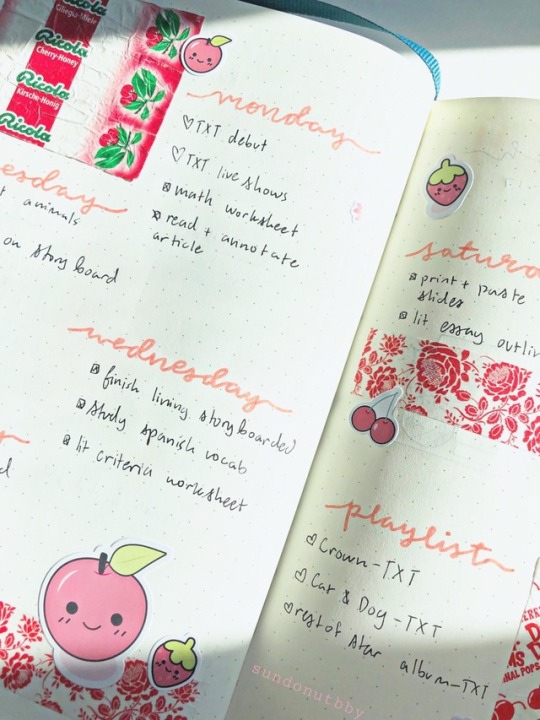 Ricola
Gliegia-Miele
Ricola
Cherry-Honey
Ricola
Kirsche-Honig
Ricola
monday
TXT debut
TXT live shows
math worksheet
read + annotate
article
esday
animals
on story board
wednesday
finish living storyboarded
study spanish vocab
lit criteria worksheet
y
d
satur
print + paste
slides
lit essay outlin
playlist
Crown-TXT
Cat & Dog-TXT
rest of star album-TXT
sundonutbby